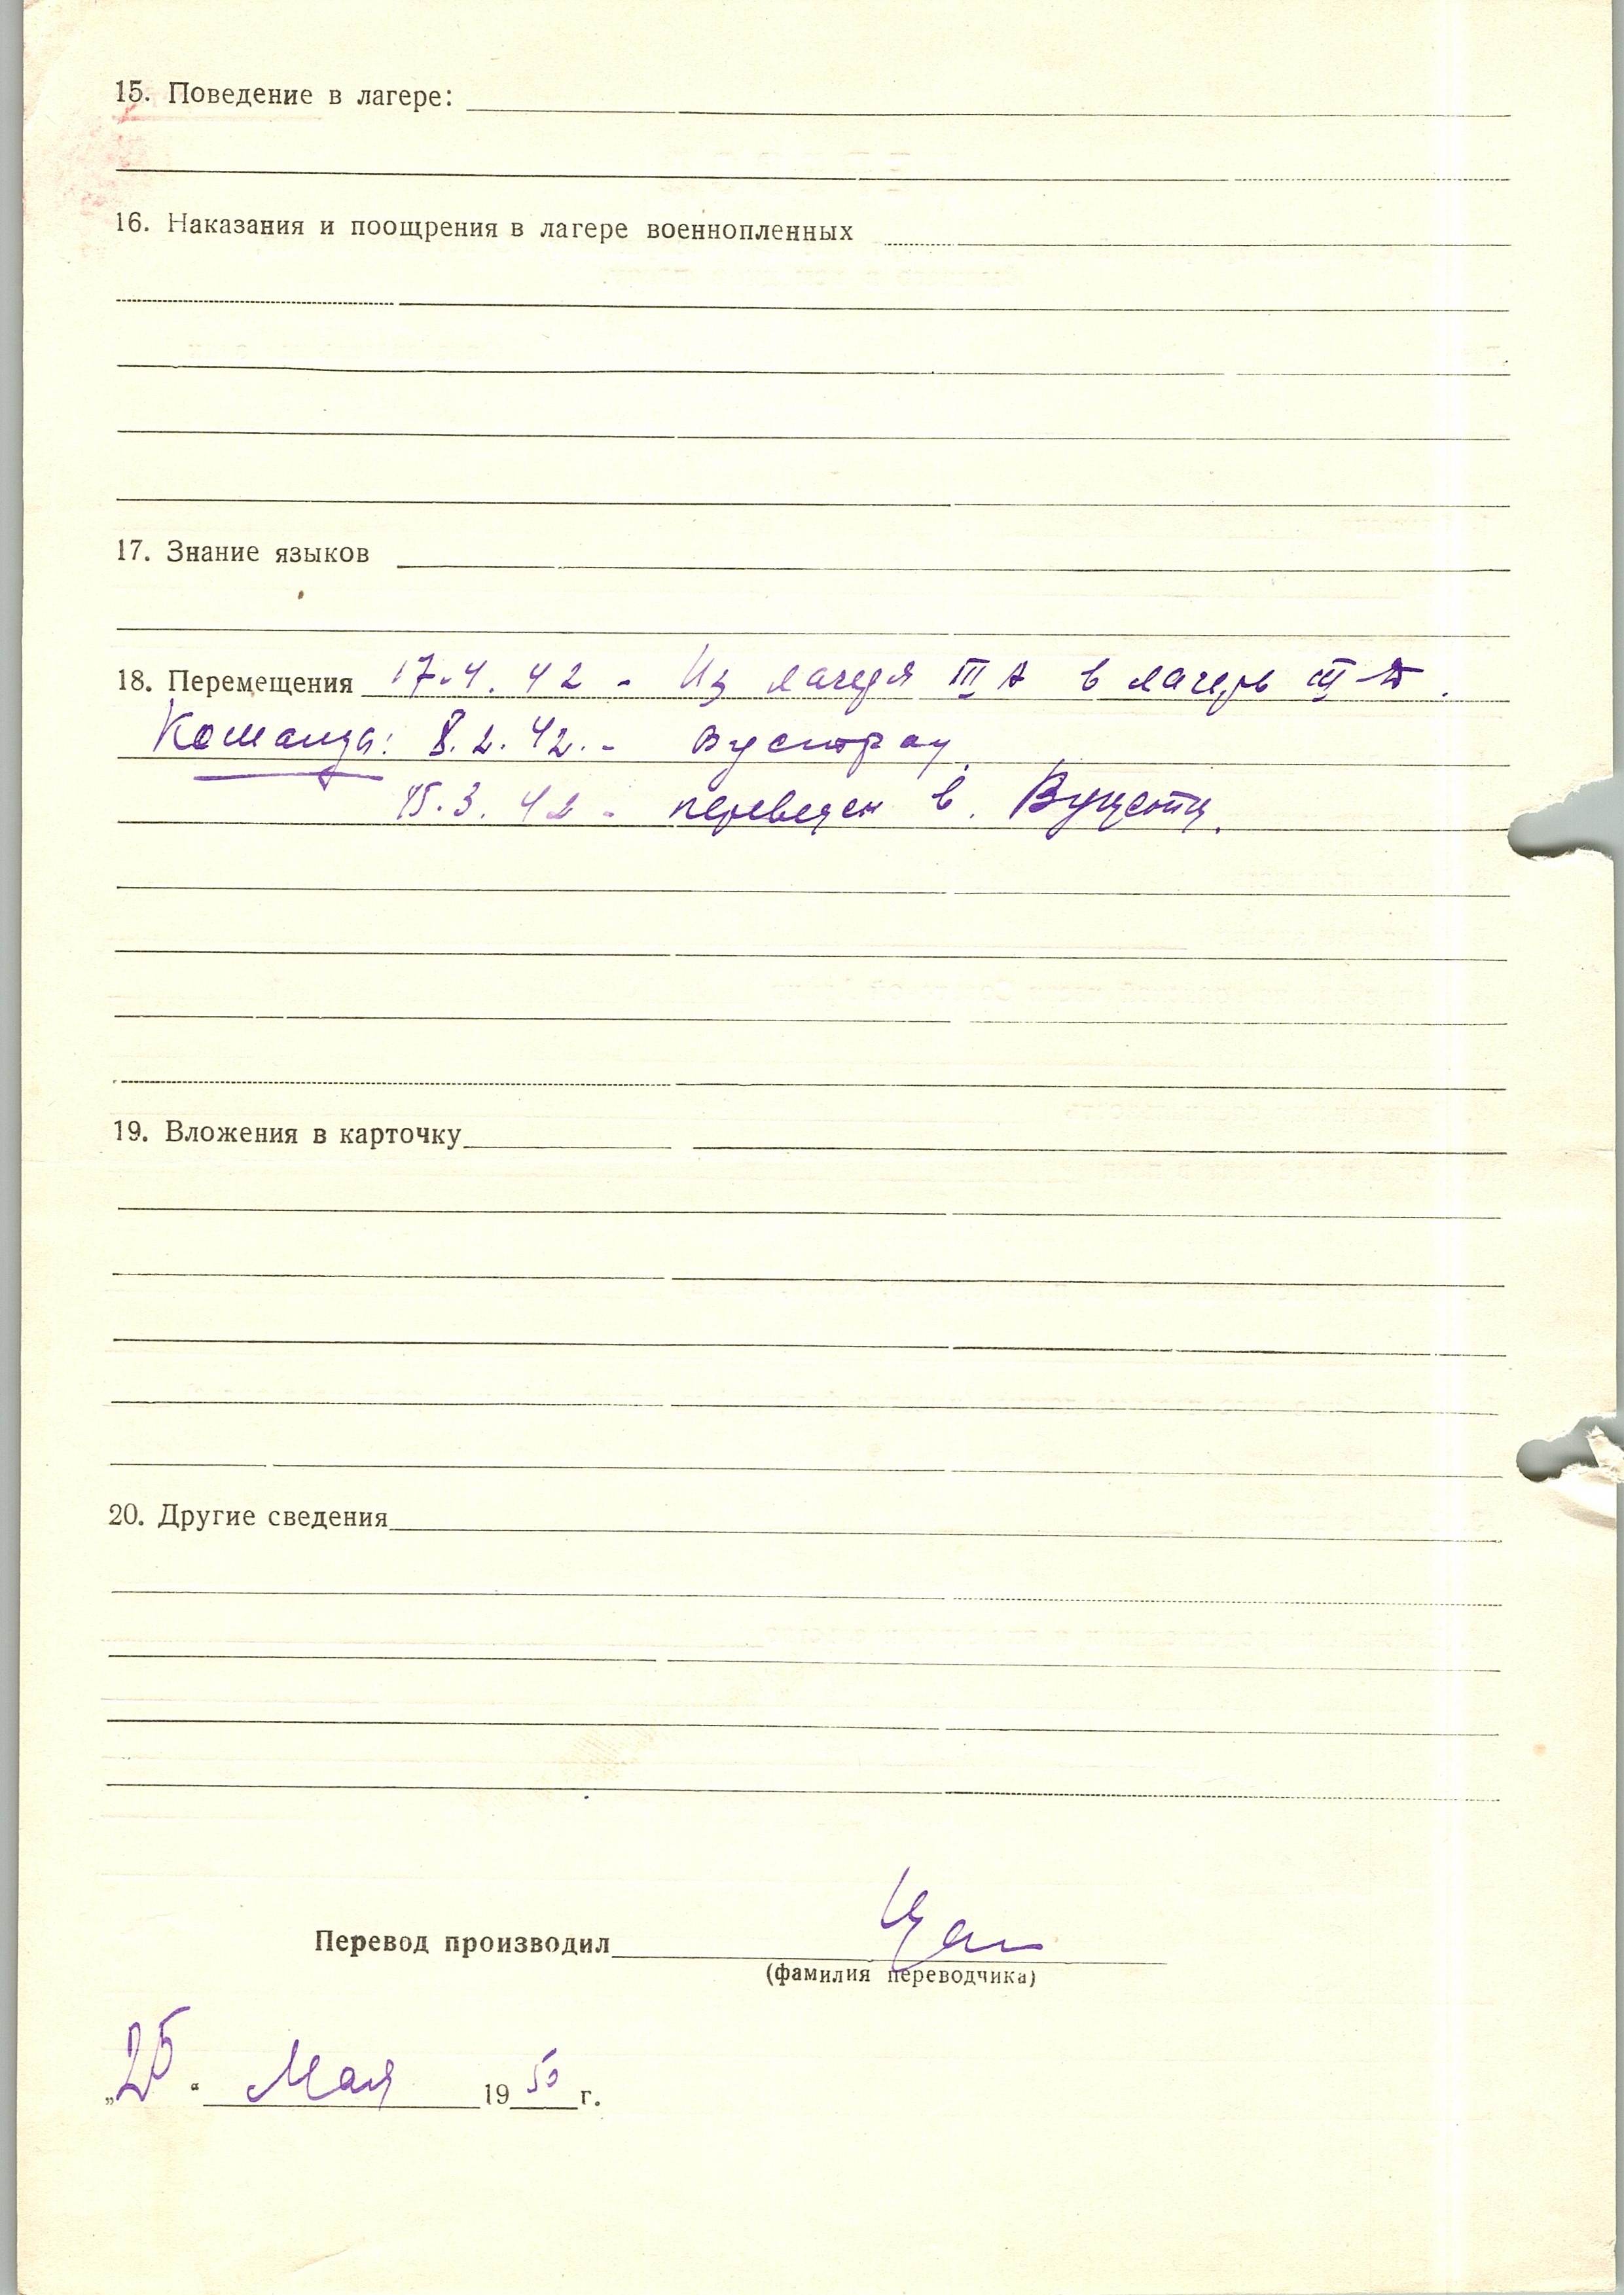 15. Поведение в лагере:
16. Наказания и поощрения в лагере военнопленных
17. Знание языков
18. Перемещения 17.4.42 - Из лагеря III А в лагерь III-Д.
Команда: 8.2.42. - Вустрау.
15.3.42 - переведен в.
19. Вложения в карточку
20. Другие сведения
Перевод производил
(фамилия переводчика)
„25“ Мая 1950 г.